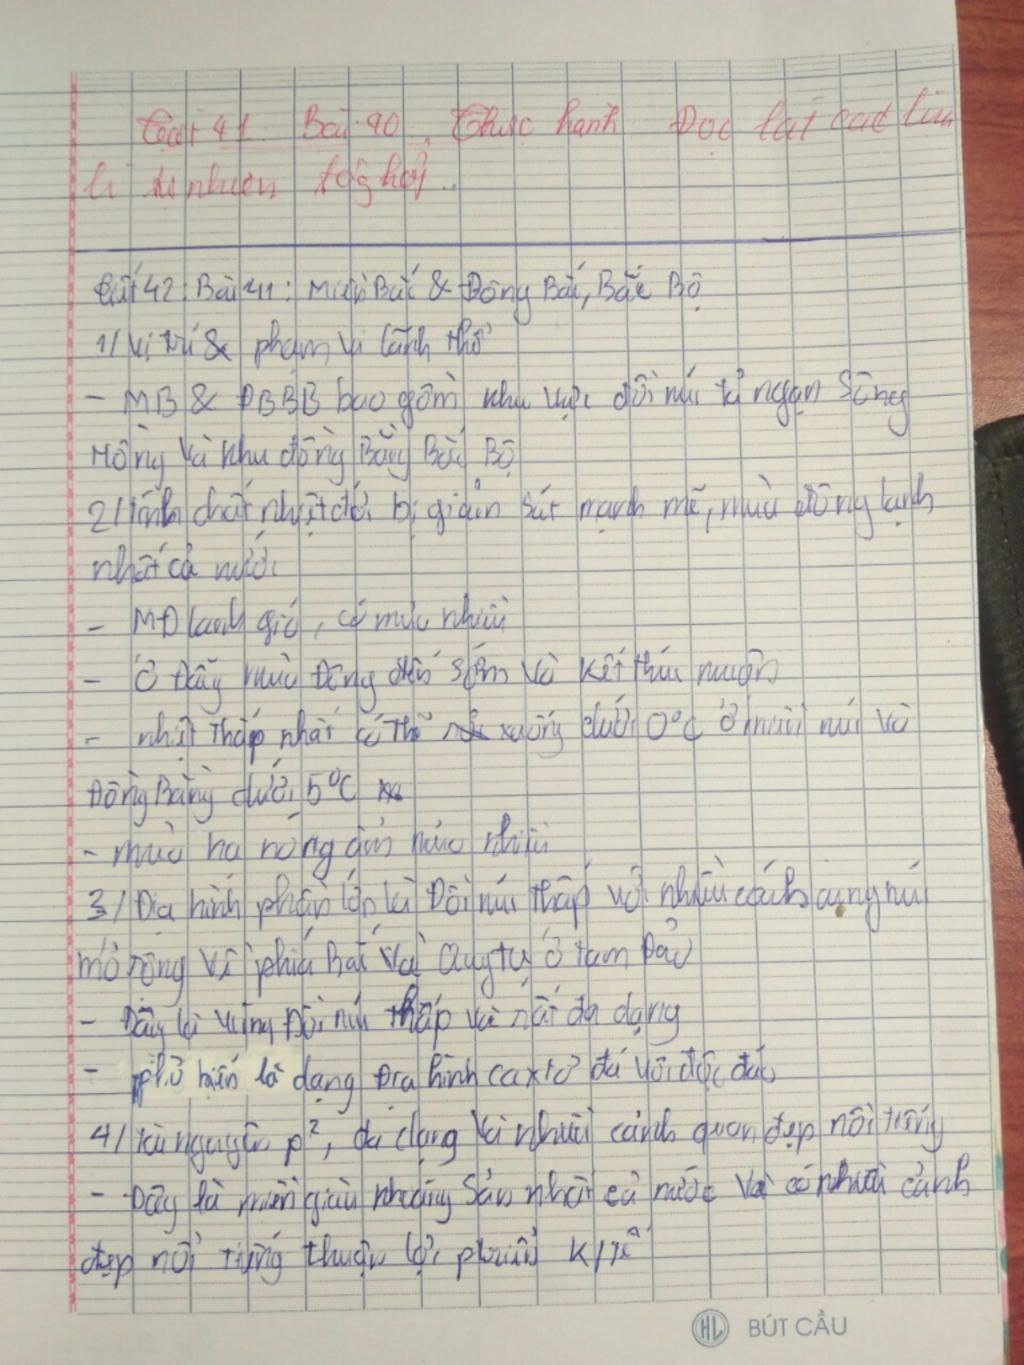 Tiết 41 Bài 40. Thực hành Đọc lát cắt
lí tự nhiên tổg hợp..
Tiết 42: Bài 41: Miền Bắc & Đông Bắc, Bắc Bộ
1/ Vị trí & phạm vi lãnh thổ
- MB & ĐBBB bao gồm khu vực đồi núi tả ngạn Sông
Hồng và khu đồng Bằng Bắc Bộ
2/ tính chất nhiệt đới bị giảm sút mạnh mẽ, mùa đông lạnh
nhất cả nước
- MĐ lạnh gió, có mưa nhiều
- Ở Đây mùa Đông đến sớm và kết thúc muộn
- nhiệt thấp nhất có thể xuống dưới 0°C ở miền núi và
Đồng Bằng dưới 5°C
- mùa hạ nóng ẩm mưa nhiều
3/ Địa hình phần lớn là Đồi núi thấp với nhiều cánh cung núi
mở rộng về phía Bắc và Quy tụ ở tam Đảo
- Đây là vùng Đồi núi thấp và rất đa dạng
- phổ biến là dạng Địa hình caxtơ đá vôi độc đáo
4/ tài nguyên p², đa dạng và nhiều cảnh quan đẹp nổi tiếng
- Đây là miền giàu khoáng Sản nhất cả nước và có nhiều cảnh
đẹp nổi tiếng thuận lợi phát triển k/tế
HL BÚT CẦU